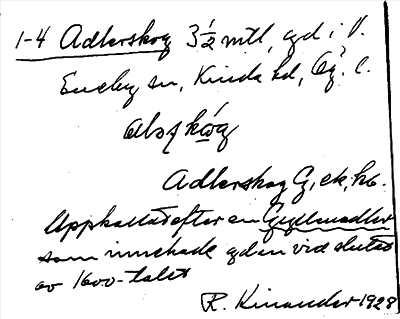 1-4 Adlerskog 3½ mtl, gd i V.
Eneby sn, Kinda hd, Ög. l.
Adlerskog G, ek, hb.
Uppkallat efter en Gyllenadler
som innehade gden vid slutet
av 1600-talet
R. Kinander 1928